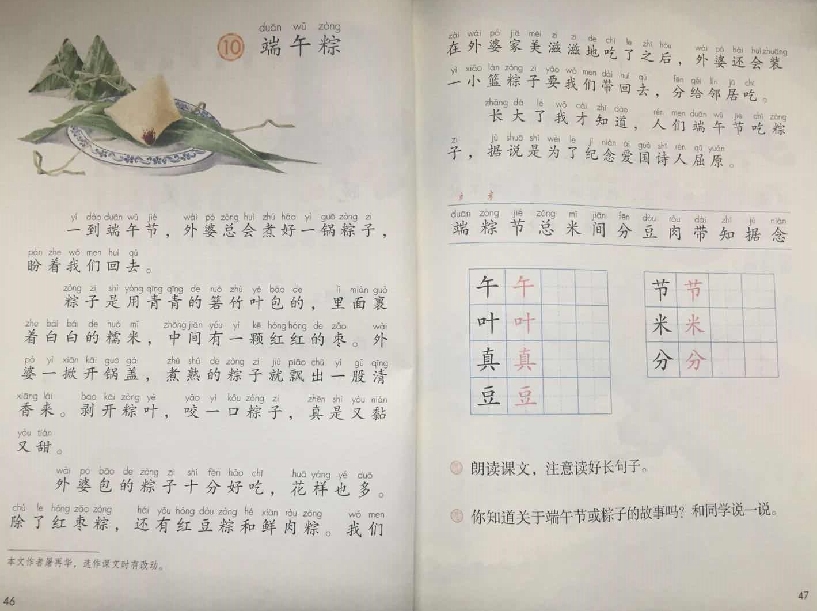 duān wǔ zòng
10 端午粽
yí dào duān wǔ jié wài pó zǒng huì zhǔ hǎo yì guō zòng zi
一到端午节，外婆总会煮好一锅粽子，
pàn zhe wǒ men huí qù
盼着我们回去。
zòng zi shì yòng qīng qīng de ruò zhú yè bāo de lǐ miàn guǒ
粽子是用青青的箬竹叶包的，里面裹
zhe bái bái de nuò mǐ zhōng jiān yǒu yì kē hóng hóng de zǎo wài
着白白的糯米，中间有一颗红红的枣。外
pó yì xiān kāi guō gài zhǔ shú de zòng zi jiù piāo chū yì gǔ qīng
婆一掀开锅盖，煮熟的粽子就飘出一股清
xiāng lái bāo kāi zòng yè yǎo yì kǒu zòng zi zhēn shì yòu nián
香来。剥开粽叶，咬一口粽子，真是又黏
yòu tián
又甜。
wài pó bāo de zòng zi shí fēn hǎo chī huā yàng yě duō
外婆包的粽子十分好吃，花样也多。
chú le hóng zǎo zòng hái yǒu hóng dòu zòng hé xiān ròu zòng wǒ men
除了红枣粽，还有红豆粽和鲜肉粽。我们
本文作者屠再华，选作课文时有改动。
46
zài wài pó jiā měi zī zī de chī le zhī hòu wài pó hái huì zhuāng
在外婆家美滋滋地吃了之后，外婆还会装
yì xiǎo lán zòng zi yào wǒ men dài huí qù fēn gěi lín jū chī
一小篮粽子要我们带回去，分给邻居吃。
zhǎng dà le wǒ cái zhī dào rén men duān wǔ jié chī zòng
长大了我才知道，人们端午节吃粽
zi jù shuō shì wèi le jì niàn ài guó shī rén qū yuán
子，据说是为了纪念爱国诗人屈原。
duān zòng jié zǒng mǐ jiān fēn dòu ròu dài zhī jù niàn
端粽节总米间分豆肉带知据念
午 午 节 节
叶 叶 米 米
真 真 分 分
豆 豆
朗读课文，注意读好长句子。
你知道关于端午节或粽子的故事吗？和同学说一说。
47